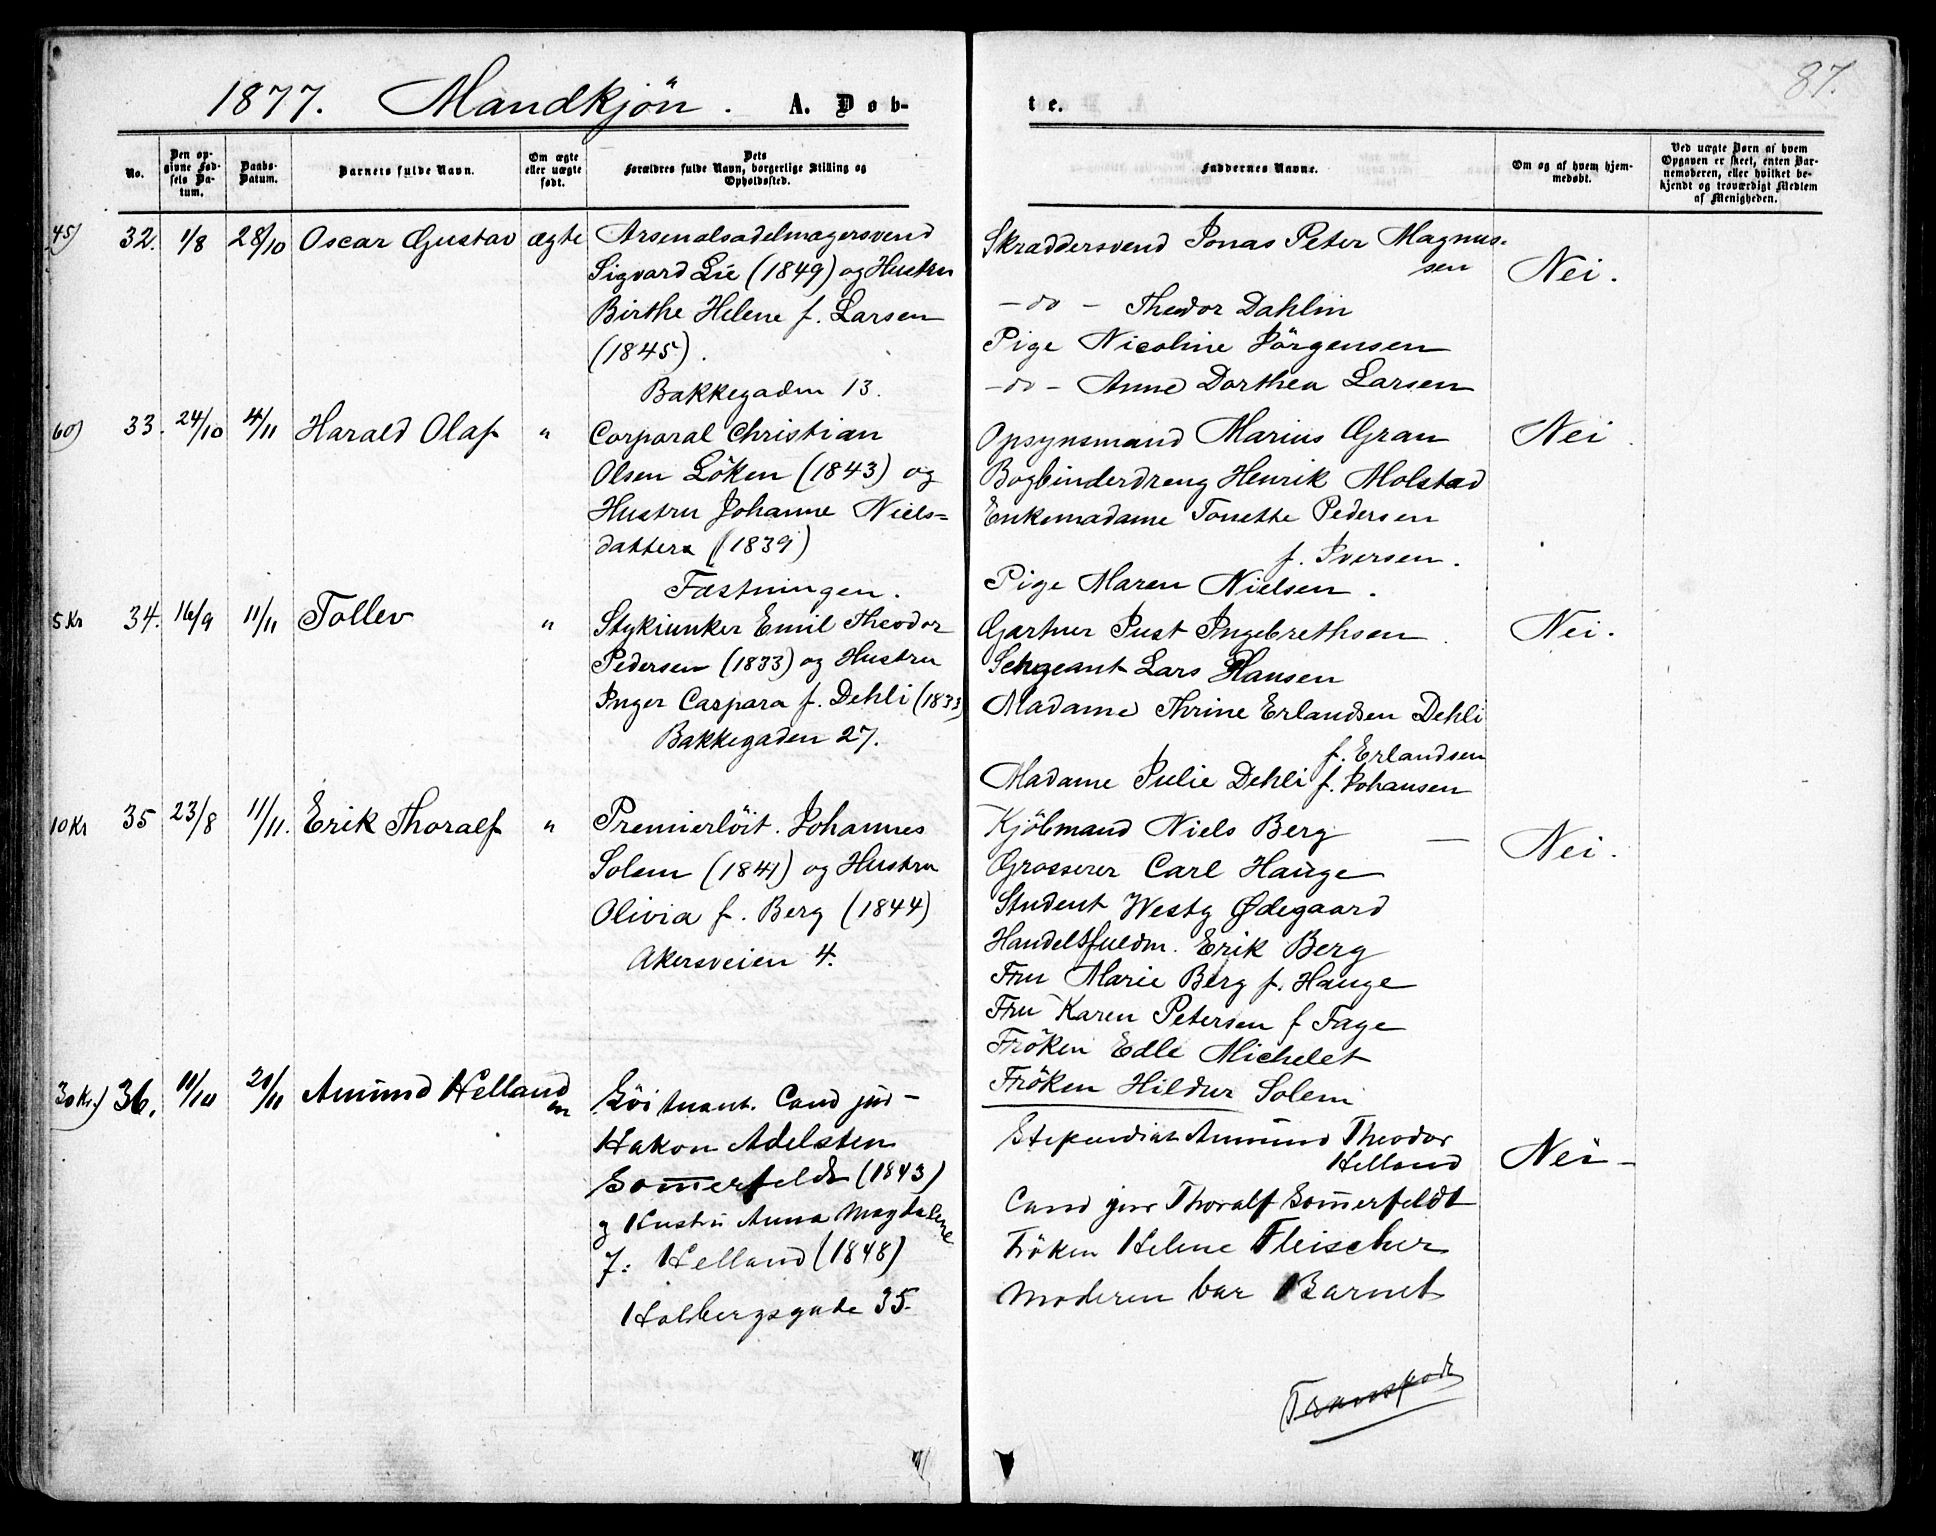 87.
1877. Mandkjön. A. Døb-
te.
No.
Den opgivne Fødsels Datum.
Daabs-Datum.
Barnets fulde Navn.
Om ægte eller uægte født.
Dets Forældres fulde Navn, borgerlige Stilling og Opholdssted.
Faddernes Navne.
Om og af hvem hjemmedøbt.
Ved uægte Børn af hvem Opgaven er skeet, enten Barnemoderen, eller hvilket bekjendt og troværdigt Medlem af Menigheden.
45) 32. 1/8 28/10 Oscar Gustav ægte
Arsenalsadelmagersvend
Sigvard Lie (1849) og Hustru
Birthe Helene f. Larsen
(1845).
Bakkegaden 13.
Skræddersvend Jonas Peter Magnus-
sen
- do - Theodor Dahlin
Pige Nicoline Jörgensen
- do - Anne Dorthea Larsen
Nei.
60) 33. 24/10 4/11 Harald Olaf "
Corporal Christian
Olsen Löken (1843) og
Hustru Johanne Niels-
datter (1839)
Fæstningen.
Opsynsmand Marius Gran
Bogbinderdreng Henrik Molstad
Enkemadame Tonette Pedersen
f. Iversen.
Pige Maren Nielsen.
Nei.
5 Kr 34. 16/9 11/11 Tollev "
Stykjunker Emil Theodor
Pedersen (1833) og Hustru
Inger Caspara f. Dehli (1833)
Bakkegaden 27.
Gartner Just Ingebrethsen.
Sergeant Lars Hansen
Madame Thrine Erlandsen Dehli
f. Erlandsen
Madame Julie Dehli f. Johansen
Nei.
10 Kr 35 23/8 11/11. Erik Thoralf "
Premierlöit. Johannes
Solem (1841) og Hustru
Olivia f. Berg (1844)
Akersveien 4.
Kjöbmand Niels Berg
Grosserer Carl Hauge
Student Westy Ødegaard
Handelsfuldm. Erik Berg
Fru Marie Berg f. Hauge
Fru Karen Petersen f Fage
Fröken Edle Michelet
Fröken Hildur Solem
Nei.
30 Kr.) 36. 11/10 20/11 Amund Helland "
Löitnant. Cand jur -
Hakon Adelsten
Somerfeldt (1843)
og Hustru Anna Magdalene
f: Helland (1848)
Holbergsgade 35.
Stipendiat Amund Theodor
Helland
Cand jur Thoralf Somerfeldt
Fröken Helene Fleischer
Moderen bar Barnet
Nei -
Transport